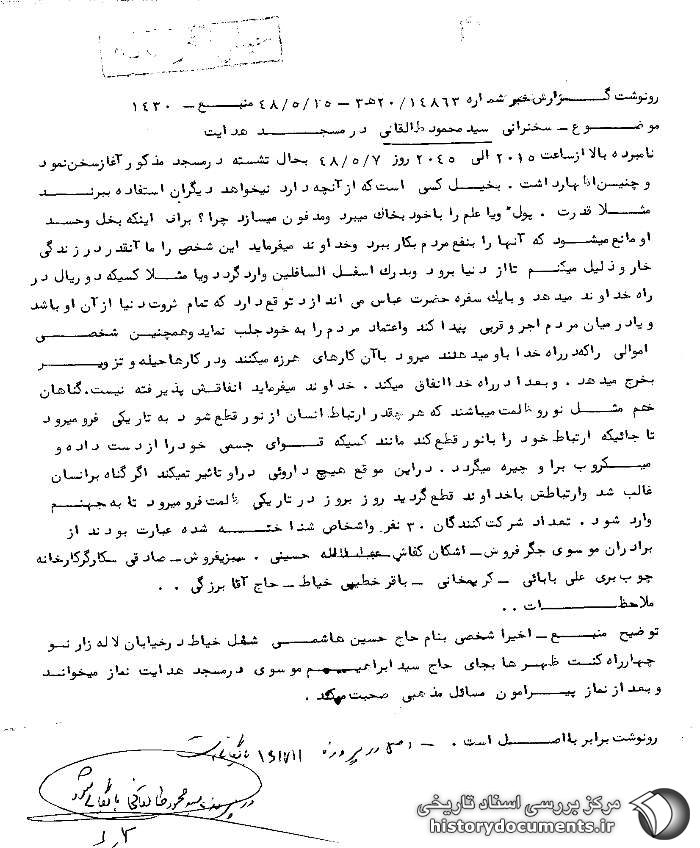 رونوشت گـزارش خبر شماره ۲۰/۱۴۸۶۳هـ۳ – ۴۸/۵/۱۵ منبـع – ۱۴۳۰
موضـوع – سخنرانی سید محمود طالقانی در مسجـد هدایت
نامبرده بالا از ساعت ۲۰۱۵ الی ۲۰۴۵ روز ۴۸/۵/۷ بحال نشسته در مسجد مذکور آغاز سخن نمود
و چنین اظهار داشت . بخیـل کسی است که از آنچه دارد نمیخواهد دیگران استفاده ببرنـد
مثـلا قدرت . پول و یا علم را با خود بخاک میبرد و مدفون میسازد چرا ؟ برای اینکه بخل و حسد
او مانع میشـود که آنها را بنفع مردم بکار ببرد و خداوند میفرماید این شخص را ما آنقدر در زندگی
خار و ذلیل میکنـم تا از دنیا برود و بدرک اسفل السافلین وارد گردد و یا مثـلا کسیکه دو ریال در
راه خداوند میدهد و بایک سفره حضرت عباس می اندازد توقع دارد که تمام ثروت دنیا از آن او باشد
و یا در میان مردم اجر و قربی پیدا کند و اعتماد مردم را به خود جلب نماید و همچنین شخصـی
اموالی راکه در راه خدا باو میدهند میرود با آن کارهای هرزه میکنند و در کارها حیله و تزویـر
بخرج میدهد . و بعدا در راه خدا انفاق میکند . خداوند میفرماید انفاقش پذیرفته نیست . گناهان
هم مثـل نور و ظلمت میباشند که هر چقدر ارتباط انسان از نور قطع شود به تاریکی فرو میرود
تا جائیکه ارتباط خود را با نور قطع کند مانند کسیکه قـوای جسمی خود را از دست داده و
میـکروب بر او چیره میگردد . در این موقع هیچ داروئی در او تاثیر نمیکند اگر گناه بر انسان
غالب شد و ارتباطش با خداوند قطع گردید روز بروز در تاریکی ظلمت فرو میرود تا به جهنـم
وارد شود . تعداد شرکت کنندگان ۳۰ نفر و اشخاص شناختـه شده عبارت بودند از
برادران موسوی جگر فروش – اشکان کفاش حسینی . سبزیفروش – صادقی کارگر کارخانه
چوب بری علی بابائی – کریمخانی – باقر خطیبی خیاط – حاج آقا بزرگی . .
ملاحظـات . .
توضیح منبـع – اخیرا شخصی بنام حاج حسین هاشمـی شغل خیاط در خیابان لاله زار نـو
چهارراه کنت ظهـرها بجای حاج سید ابراهیـم موسوی در مسجد هدایت نماز میخوانـد
و بعد از نماز پیـرامون مسائل مذهبی صحبت میکند .
رونوشت برابر با اصـل است . – اصل در پرونده
در پرونده سید محمود طالقانی بایگانی شود
مرکز بررسی اسناد تاریخی
historydocuments.ir